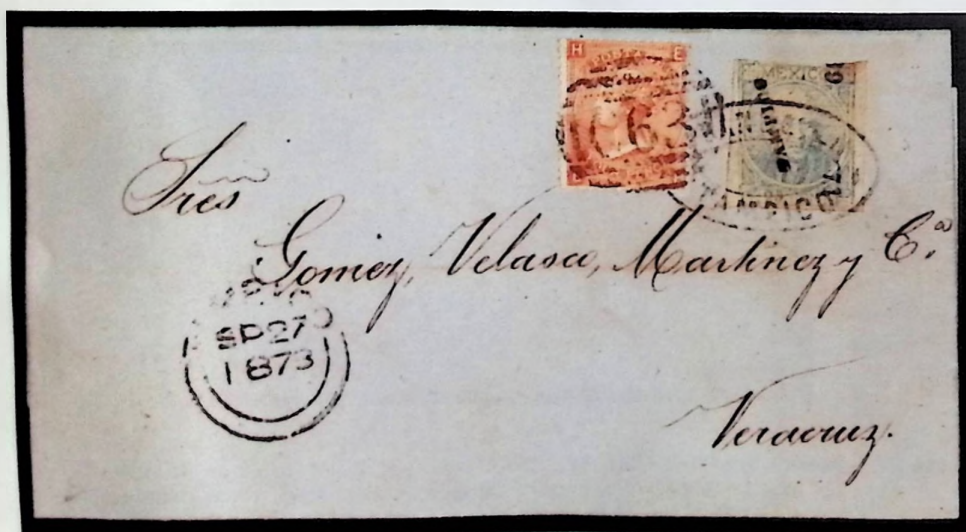 H E
C63
MEXICO
TAMPICO
Sres
Gomez, Velasco, Martinez y Cª
SP 27
1873
Veracruz.